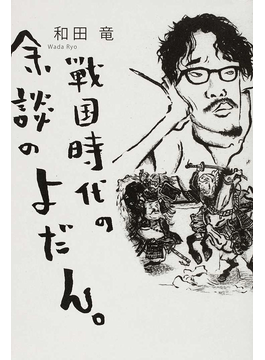 和田 竜
Wada Ryo
戦国時代の
余談の
よだん。